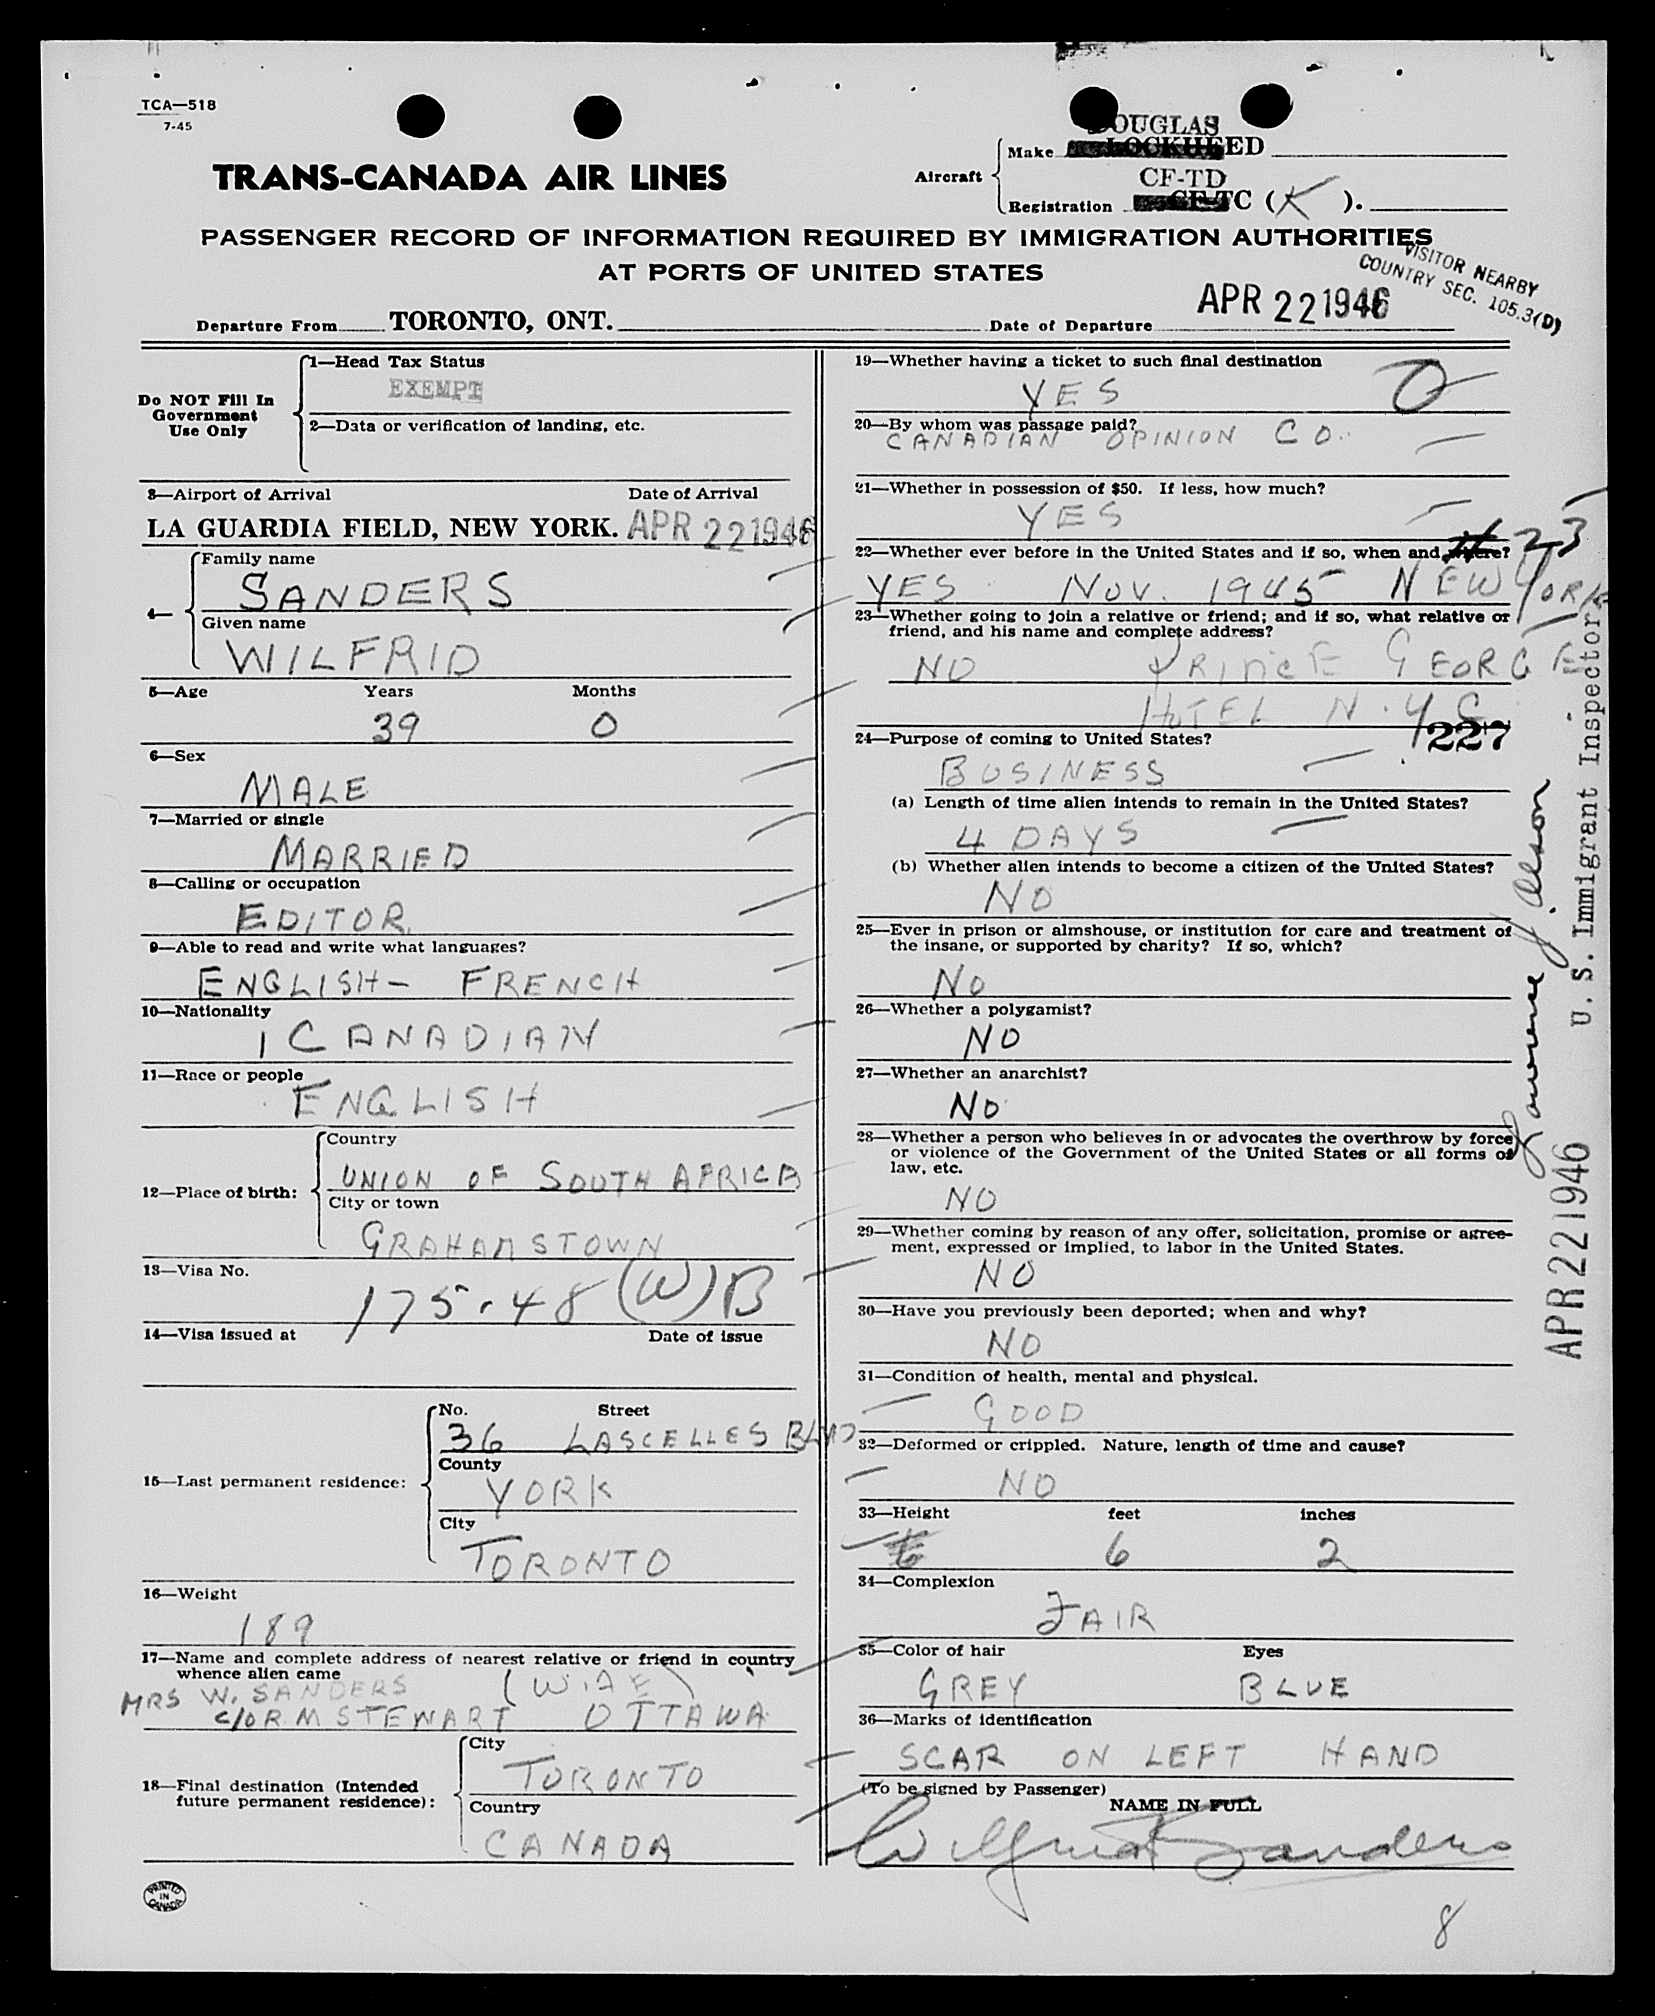 TCA—518
7-45
DOUGLAS
Make LOCKHEED
TRANS-CANADA AIR LINES
Aircraft
CF-TD
Registration CF-TC (K).
PASSENGER RECORD OF INFORMATION REQUIRED BY IMMIGRATION AUTHORITIES
AT PORTS OF UNITED STATES
VISITOR NEARBY
COUNTRY SEC. 105.3(D)
Departure From TORONTO, ONT. Date of Departure APR 22 1946
Do NOT Fill In
Government
Use Only
1—Head Tax Status
EXEMPT
2—Data or verification of landing, etc.
3—Airport of Arrival Date of Arrival
LA GUARDIA FIELD, NEW YORK. APR 22 1946
4—
Family name
SANDERS
Given name
WILFRID
5—Age Years Months
39 0
6—Sex
MALE
7—Married or single
MARRIED
8—Calling or occupation
EDITOR
9—Able to read and write what languages?
ENGLISH- FRENCH
10—Nationality
CANADIAN
11—Race or people
ENGLISH
12—Place of birth:
Country
UNION OF SOUTH AFRICA
City or town
GRAHAMSTOWN
13—Visa No.
175.48 (W) B
14—Visa issued at Date of issue
15—Last permanent residence:
No. Street
36 LASCELLES BLVD
County
YORK
City
TORONTO
16—Weight
189
17—Name and complete address of nearest relative or friend in country
whence alien came
MRS W. SANDERS (WIFE)
c/o R. M STEWART OTTAWA
18—Final destination (Intended
future permanent residence):
City
TORONTO
Country
CANADA
PRINTED
IN
CANADA
19—Whether having a ticket to such final destination
YES
20—By whom was passage paid?
CANADIAN OPINION CO.
21—Whether in possession of $50. If less, how much?
YES
22—Whether ever before in the United States and if so, when and where? 23
YES NOV. 1945 NEW YORK
23—Whether going to join a relative or friend; and if so, what relative or
friend, and his name and complete address?
NO PRINCE GEORGE
HOTEL N.Y.C
227
24—Purpose of coming to United States?
BUSINESS
(a) Length of time alien intends to remain in the United States?
4 DAYS
(b) Whether alien intends to become a citizen of the United States?
NO
25—Ever in prison or almshouse, or institution for care and treatment of
the insane, or supported by charity? If so, which?
NO
26—Whether a polygamist?
NO
27—Whether an anarchist?
NO
28—Whether a person who believes in or advocates the overthrow by force
or violence of the Government of the United States or all forms of
law, etc.
NO
29—Whether coming by reason of any offer, solicitation, promise or agree-
ment, expressed or implied, to labor in the United States.
NO
30—Have you previously been deported; when and why?
NO
31—Condition of health, mental and physical.
GOOD
32—Deformed or crippled. Nature, length of time and cause?
NO
33—Height feet inches
6 2
34—Complexion
FAIR
35—Color of hair Eyes
GREY BLUE
36—Marks of identification
SCAR ON LEFT HAND
(To be signed by Passenger)
NAME IN FULL
Wilfrid Sanders
8
Lawrence J. Olson
U. S. Immigrant Inspector
APR 22 1946